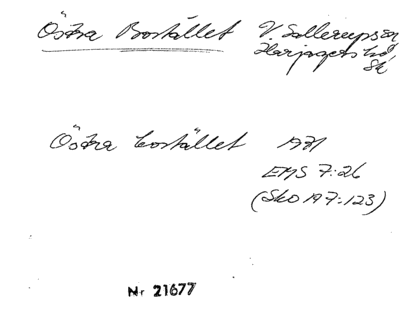 Östra Bostället V. Sallerup sn
Harjagers hd
Sk
Östra bostället 1971
EMS 7:26
(SkO 197:123)
Nr 21677